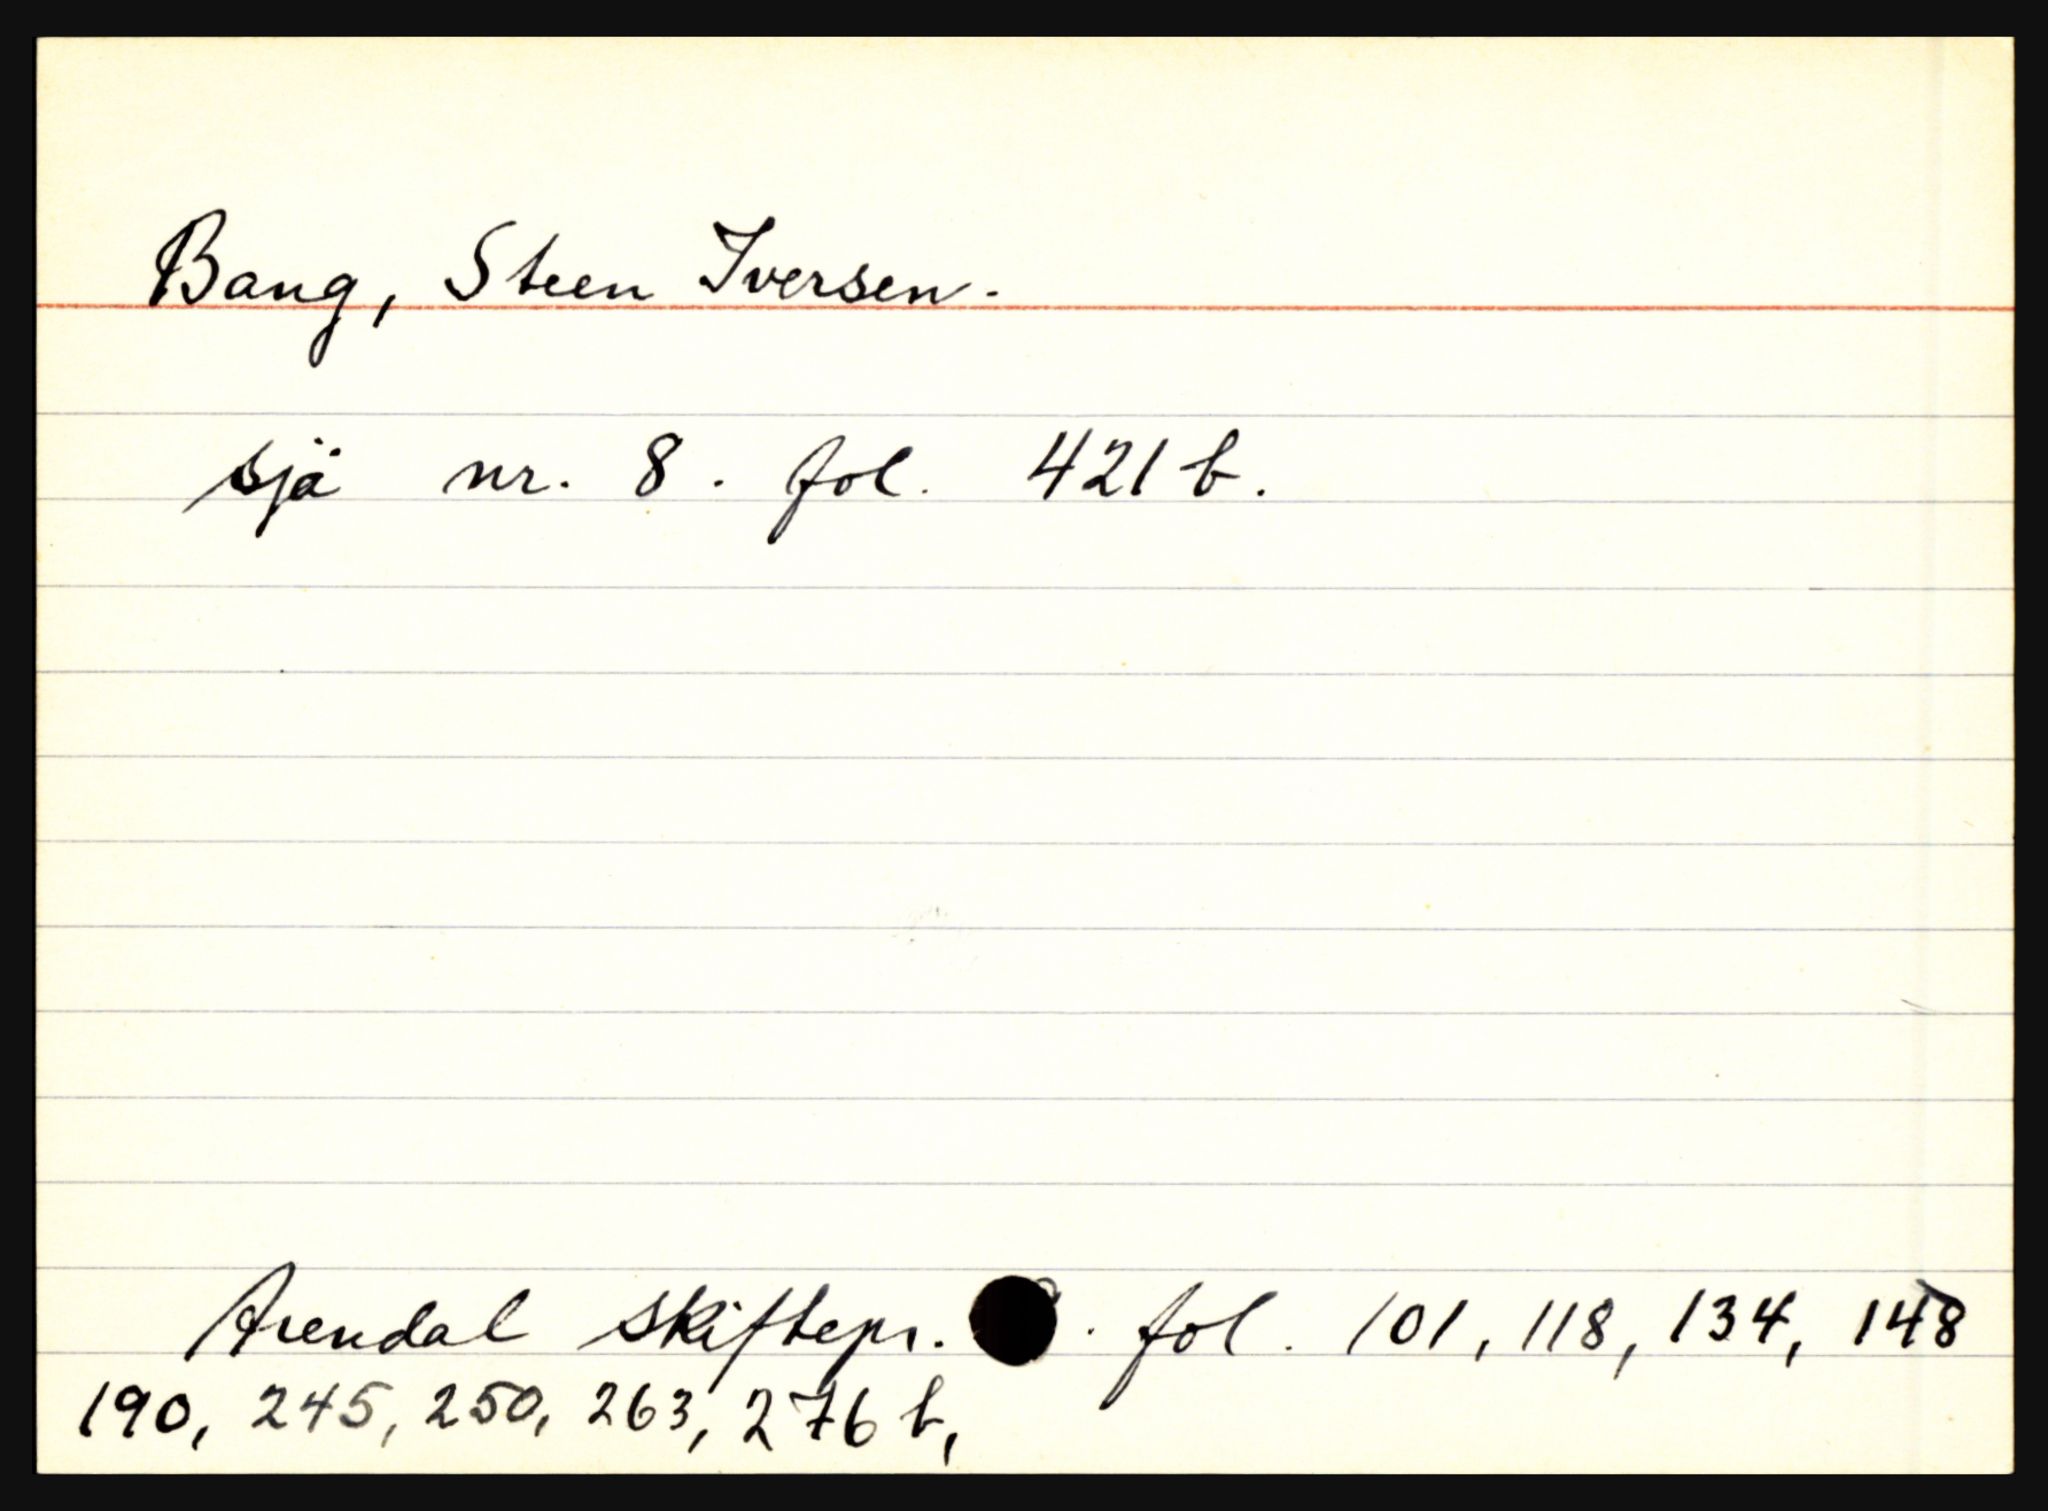 Bang, Steen Iversen.
sjå nr. 8. fol. 421 b.
Arendal skiftepr. . fol. 101, 118, 134, 148
190, 245, 250, 263, 276 b,